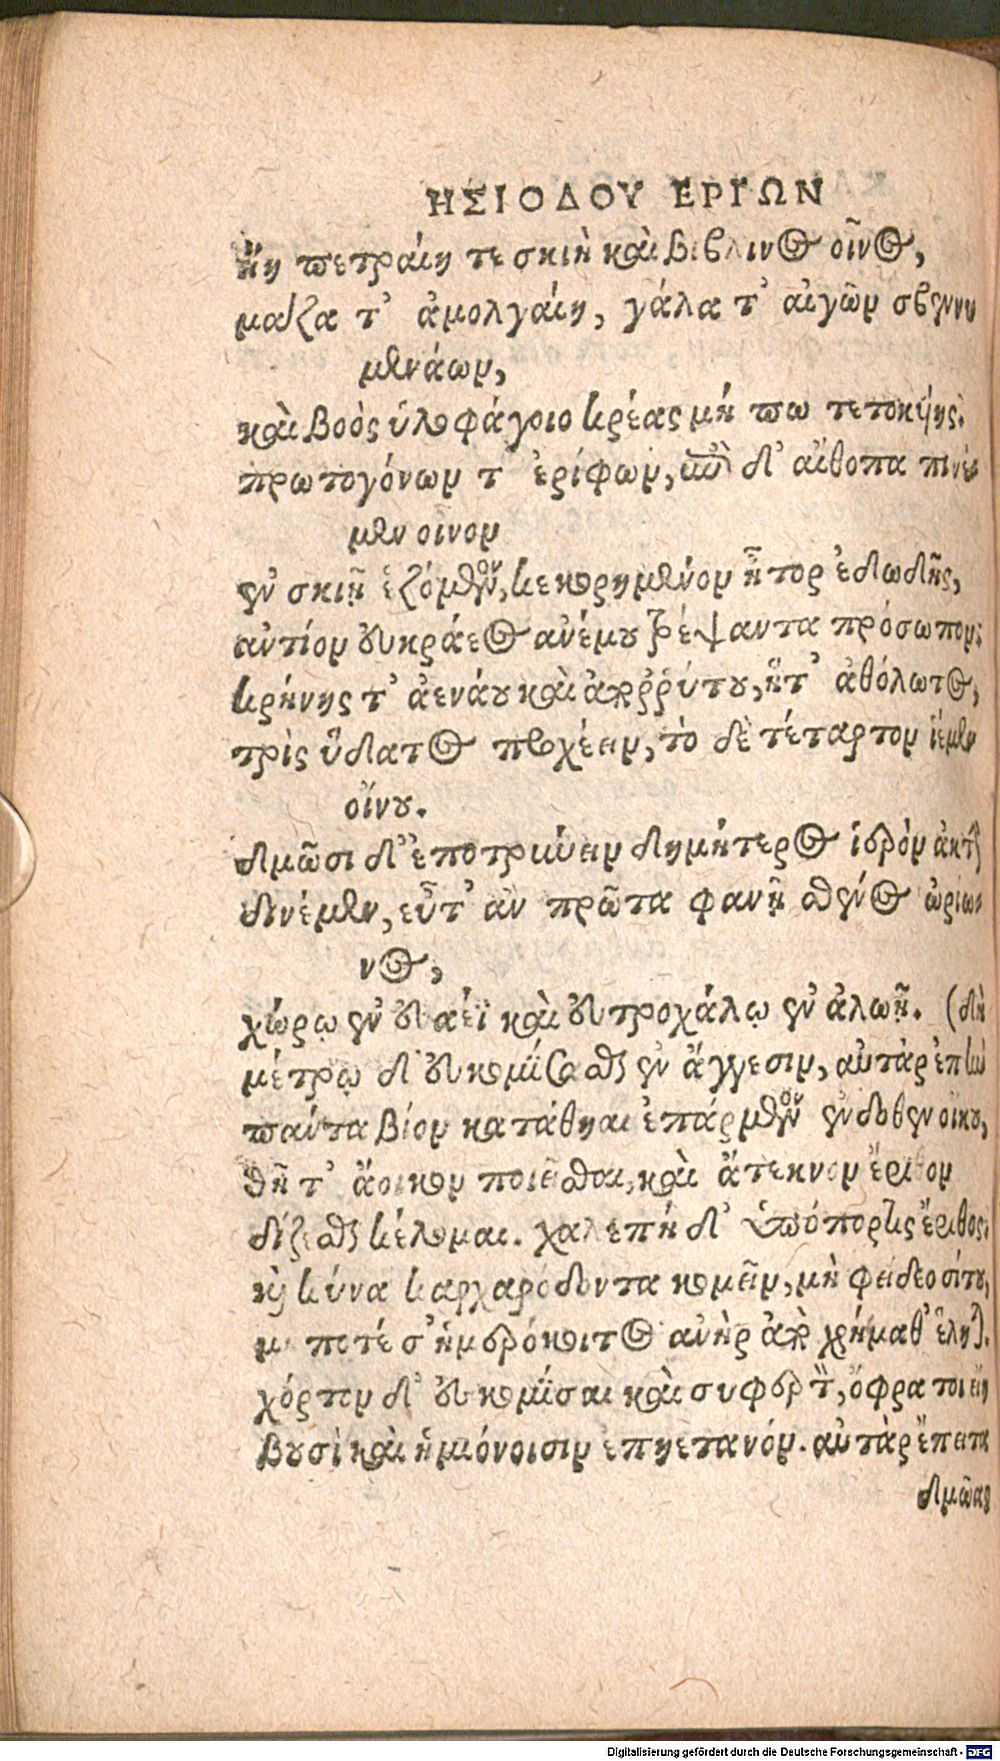 ΗΣΙΟΔΟΥ ΕΡΓΩΝ
ἤη πετραίη τε σκιὴ καὶ βιβλινος οἶνος,
μάζα τ' ἀμολγαίη, γάλα τ' αἰγῶν σβεννυ
μενάων,
καὶ βοὸς ὑλοφάγοιο κρέας μή πω τετοκυίης.
πρωτογόνων τ' ἐρίφων, ἐπὶ δ' αἴθοπα πινέ-
μεν οινον
ἐν σκιῇ ἑζόμενον, κεκορημένον ἦτορ ἐδωδῆς,
αὐτίον εὐκράεος ἀνέμου τρέψαντα πρόσωπον:
κρήνης τ' ἀενάου καὶ ἀπορρύτου, ἥτ' ἀθόλωτος,
τρὶς ὕδατος προχέειν, τὸ δὲ τέταρτον ἱέμεν
οἴνου.
δμῶσι δ' ἐποτρύνειν δημήτερος ἱερὸν ἀκτὴν
δινέμεν, εὖτ' ἂν πρῶτα φανῇ σθένος ὠρίω-
νος,
χώρῳ ἐν εὐαέϊ καὶ εὐτροχάλῳ ἐν ἀλωῇ. (δὴ
μέτρῳ δ' εὐκομίσασθαι ἐν ἄγγεσιν, αὐτὰρ ἐπὴν
πάντα βίον κατάθηαι ἐπάρμενον ἔνδοθεν οἴκου,
θῆτ' ἄοικον ποιεῖσθαι, καὶ ἄτεκνον ἔριθον
δίζεσθαι κέλομαι. χαλεπὴ δ' ὑπόπορτις ἔριθος.
καὶ κύνα καρχαρόδοντα κομεῖν, μὴ φείδεο σίτου,
μ ποτέ σ' ἡμερόκοιτος ἀνὴρ ἀπὸ χρήμαθ' ἕληται.
χόρτον δ' εὐκομίσαι καὶ συφερτὸν, ὄφρα τοι εἴη
βουσὶ καὶ ἡμιόνοισιν ἐπηετανόν. αὐτὰρ ἔπειτα
δμῶας
Digitalisierung gefördert durch die Deutsche Forschungsgemeinschaft - DFG